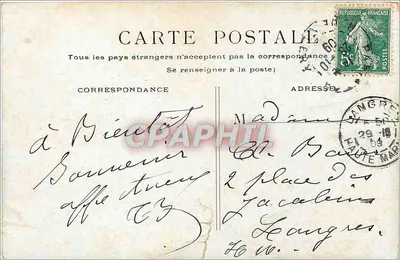 CARTE POSTALE
Tous les pays étrangers n'acceptent pas la correspondance
Se renseigner à la poste)
REPUBLIQUE FRANÇAISE
POSTES
CORRESPONDANCE
ADRESSE
à Bientôt
Souvenir
affectueux
Madame
M.
2 place des
Jacobins
Langres
LANGRES
29
HAUTE MAR
CPAPHIL